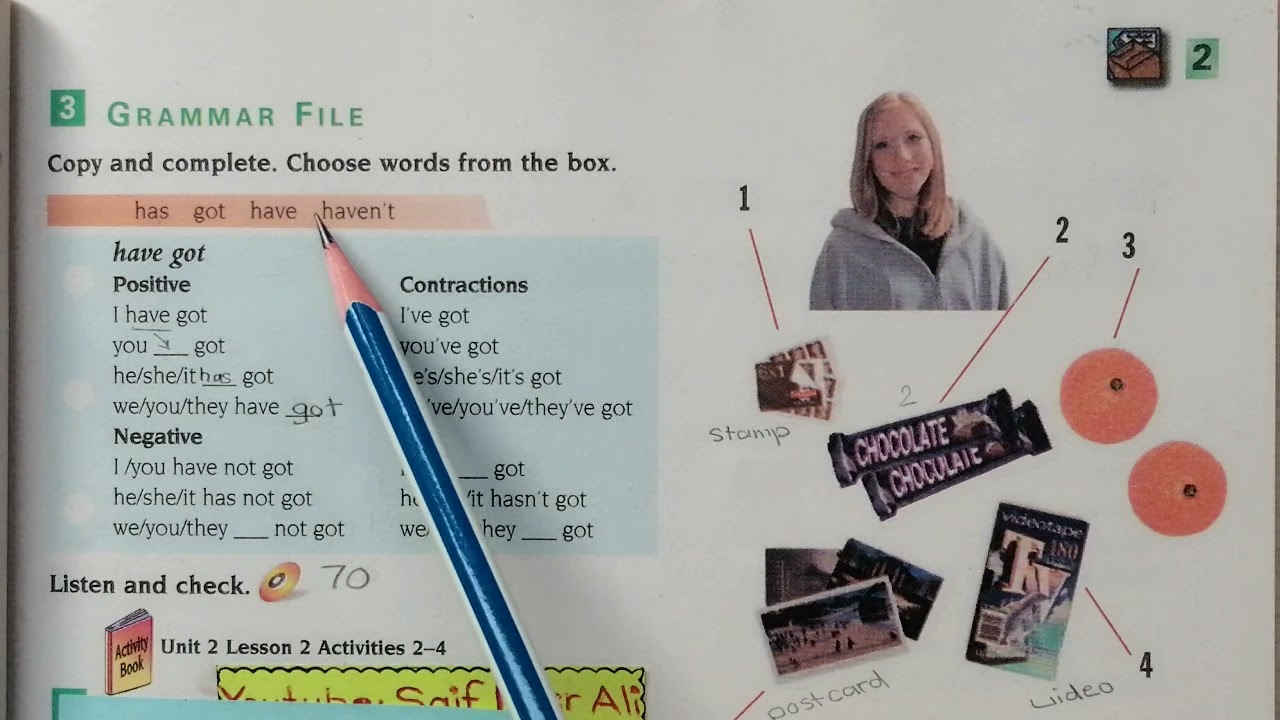 2
3 GRAMMAR FILE
Copy and complete. Choose words from the box.
has got have haven't
have got
Positive
I have got
you ___ got
he/she/it has got
we/you/they have got
Negative
I /you have not got
he/she/it has not got
we/you/they ___ not got
Contractions
I've got
you've got
he's/she's/it's got
've/you've/they've got
___ got
it hasn't got
we hey ___ got
Listen and check. 70
Activity Book
Unit 2 Lesson 2 Activities 2–4
Youtube: Saif Ali
1
2
3
stamp
2
CHOCOLATE
CHOCOLATE
videotape
TV 180
4
postcard
video